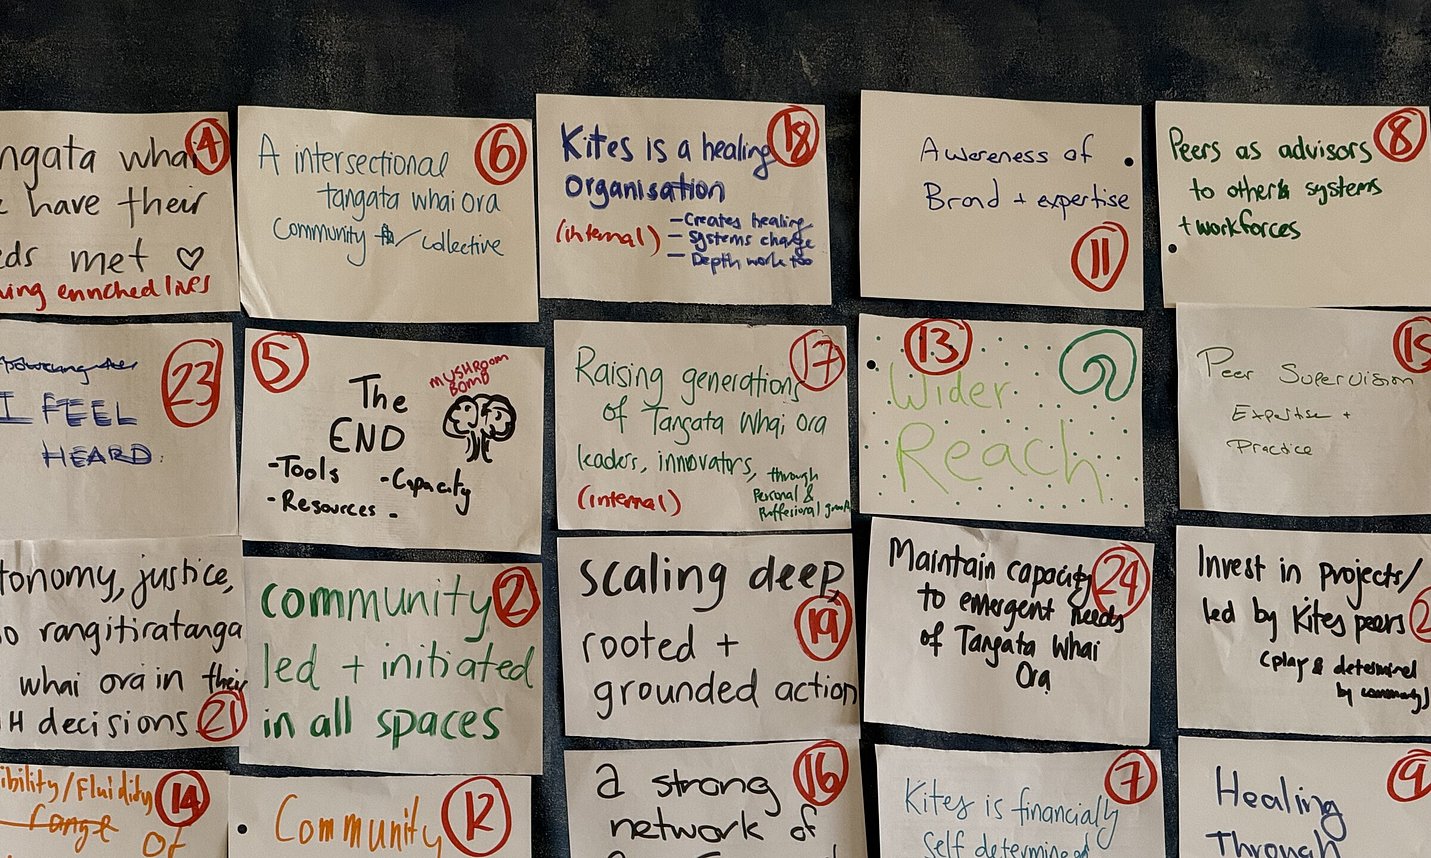 ngata whai
have their
eds met ♡
enriched lives
4
A intersectional
tangata whai ora
Community / collective
6
Kites is a healing
organisation
(internal)
- Creates healing
- Systems change
- Depth work too
18
Awareness of
Brand + expertise
11
Peers as advisors
to other systems
+ workforces
8
I FEEL
HEARD.
23
5
The
END
MUSHROOM
BOMB
- Tools
- Capacity
- Resources -
Raising generations
of Tangata Whai ora
leaders, innovators, through
Personal &
Proffesional growth
(internal)
17
13
Wider
Reach
Peer Supervision
Expertise +
Practice
15
tonomy, justice,
o rangitiratanga
whai ora in their
H decisions
21
community
led + initiated
in all spaces
2
scaling deep,
rooted +
grounded action
19
Maintain capacity
to emergent needs
of Tangata Whai
Ora
24
Invest in projects/
led by Kites peers
(play & determined
by community)
2
ibility/Fluidity
range of
14
Community
12
a strong
network of
16
Kites is financially
self determined
7
Healing
Through
9